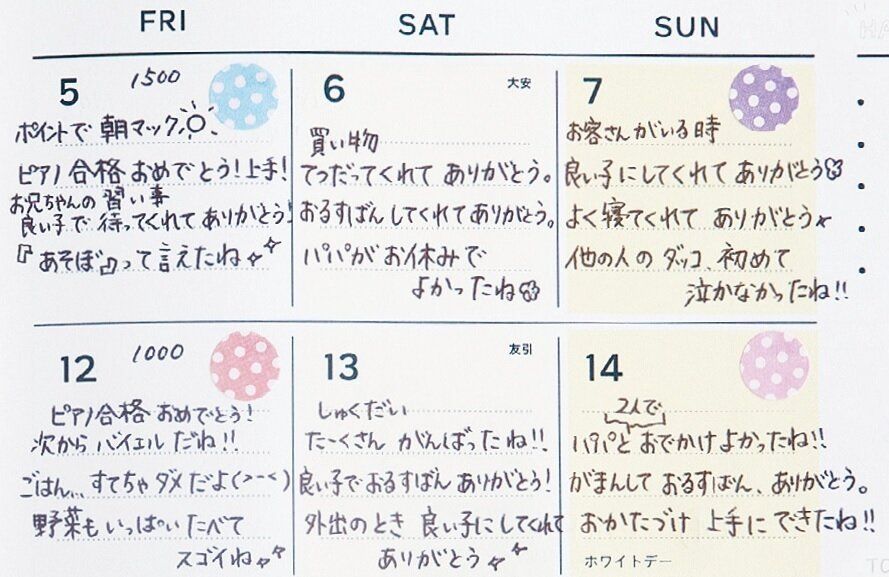 FRI
SAT
SUN
5
1500
ポイントで 朝マック
ピアノ 合格 おめでとう!上手!
お兄ちゃんの 習い事
良い子で 待ってくれて ありがとう!
『あそぼ』って 言えたね
6
大安
買い物
てつだってくれて ありがとう。
おるすばん してくれて ありがとう。
パパが お休みで
よかったね
7
お客さんがいる時
良い子にしてくれて ありがとう
よく寝てくれて ありがとう
他の人の ダッコ、初めて
泣かなかったね!!
12
1000
ピアノ合格 おめでとう!
次から バイエル だね!!
ごはん… すてちゃ ダメ だよ(>-<)
野菜も いっぱい たべて
スゴイね
13
友引
しゅくだい
たーくさん がんばったね!!
良い子で おるすばん ありがとう!
外出のとき 良い子にしてくれて
ありがとう
14
2人で
パパと おでかけ よかったね!!
がまんして おるすばん、ありがとう。
おかたづけ 上手に できたね!!
ホワイトデー